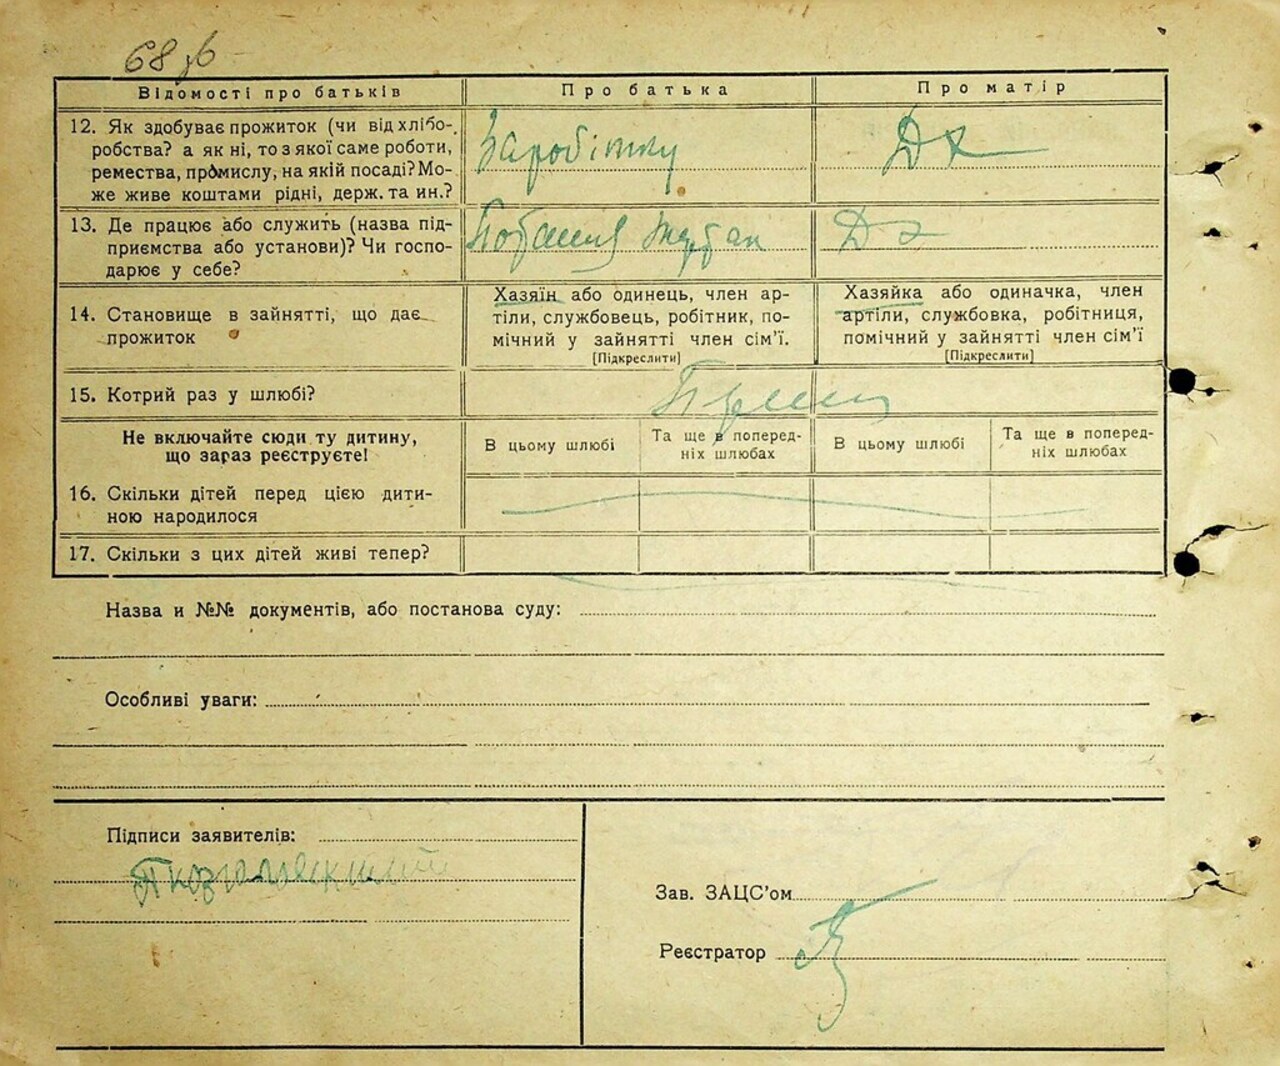 68 зв
Відомості про батьків
Про батька
Про матір
12. Як здобуває прожиток (чи від хлібо-
робства? а як ні, то з якої саме роботи,
ремества, промислу, на якій посаді? Мо-
же живе коштами рідні, держ. та ин.?
Заробітку
Дх
13. Де працює або служить (назва під-
приємства або установи)? Чи госпо-
дарює у себе?
14. Становище в зайнятті, що дає
прожиток
Хазяїн або одинець, член ар-
тіли, службовець, робітник, по-
мічний у зайнятті член сім'ї.
[Підкреслити]
Хазяйка або одиначка, член
артіли, службовка, робітниця,
помічний у зайнятті член сім'ї
[Підкреслити]
15. Котрий раз у шлюбі?
Не включайте сюди ту дитину,
що зараз реєструєте!
В цьому шлюбі
Та ще в поперед-
ніх шлюбах
В цьому шлюбі
Та ще в поперед-
ніх шлюбах
16. Скільки дітей перед цією дити-
ною народилося
17. Скільки з цих дітей живі тепер?
Назва и №№ документів, або постанова суду:
Особливі уваги:
Підписи заявителів:
Зав. ЗАЦС'ом
Реєстратор